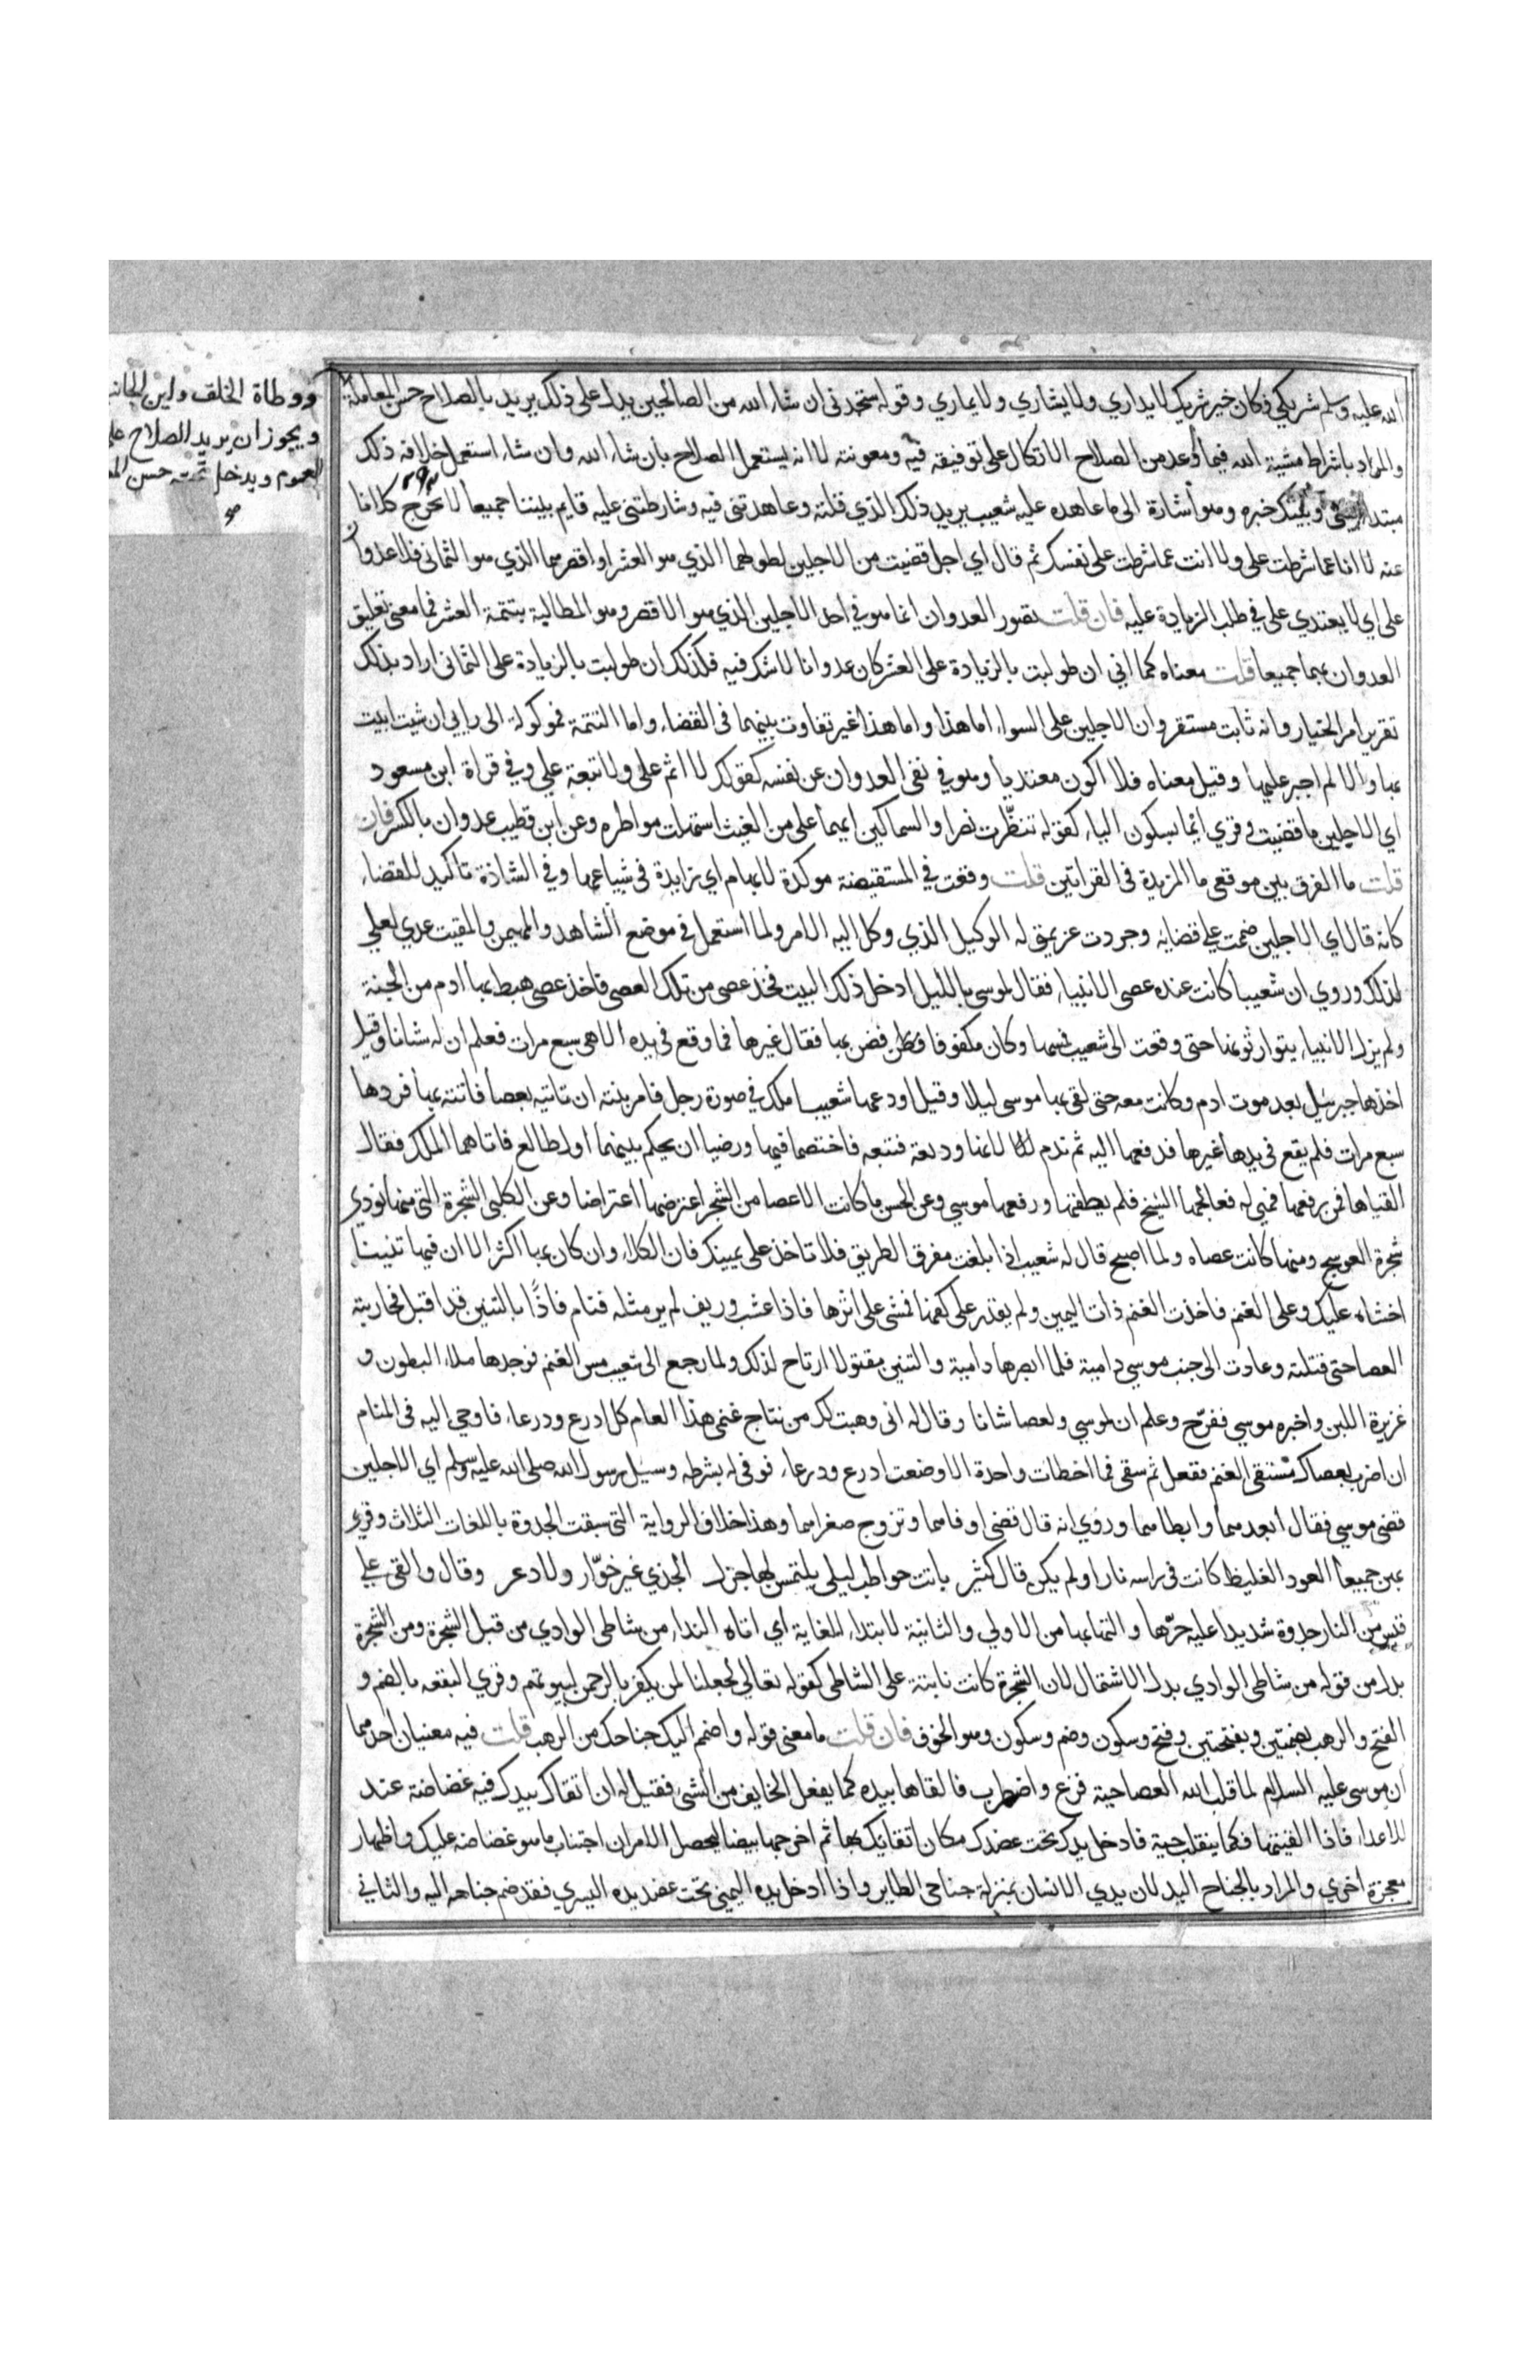 الله عليه وسلم شريكي فكان خير شريك لا يداري ولا يشاري ولا يماري وقوله ستجدني ان شاء الله من الصالحين يدل على ذلك يريد بالصلاح حسن المعاملة
والمراد باشراط مشيئة الله فيما وعد من الصلاح الاتكال على توفيقه فيه ومعونته لا انه يستعمل الصلاح بان شاء الله وان شاء استعمل خلافه ذلك
مبتدا وبيني وبينك خبره وهو اشارة الى ما عاهده عليه شعيب يريد ذلك الذي قلته وعاهدتني فيه وشارطتني عليه قايم بيننا جميعا لا يخرج كلانا
عنه لا انا عما شرطت علي ولا انت عما شرطت على نفسك ثم قال اي اجل قضيت من الاجلين اطولهما الذي هو العشر او اقصرهما الذي هو الثماني فلا عدوان
علي اي لا يعتدي علي في طلب الزيادة عليه فان قلت تصور العدوان انما هو في احد الاجلين الذي هو الاقصر وهو المطالبة بتتمة العشر فما معنى تعليق
العدوان بهما جميعا قلت معناه كما اني ان طولبت بالزيادة على العشر كان عدوانا لا شك فيه فكذلك ان طولبت بالزيادة على الثماني اراد بذلك
تقرير امر الخيار وانه ثابت مستقر وان الاجلين على السواء اما هذا واما هذا غير تفاوت بينهما في القضاء واما التتمة فموكولة الى رايي ان شيت اتيت
بها والا لم اجبر عليها وقيل معناه فلا اكون معتديا وهو في نفي العدوان عن نفسه كقولك لا اثم علي ولا تبعة علي وفي قراة ابن مسعود
اي الاجلين ما قضيت وقري ايما بسكون الياء كقوله تنظرت نصرا والسماكين ايهما علي من الغيث استهلت مواطره وعن ابن قطيب عدوان بالكسر فان
قلت ما الفرق بين موقعي ما المزيدة في القراتين قلت وقعت في المستفيضة موكدة لابهام اي زايدة في شياعها وفي الشاذة تاكيدا للقضاء
كانه قال اي الاجلين صممت على قضايه وجردت عزيمتي له الوكيل الذي وكل اليه الامر ولما استعمل في موضع الشاهد والمهيمن والمقيت عدي بعلى
لذلك وروي ان شعيبا كانت عنده عصي الانبياء فقال لموسى بالليل ادخل ذلك البيت فخذ عصى من تلك العصي فاخذ عصى هبط بها ادم من الجنة
ولم يزل الانبياء يتوارثونها حتى وقعت الى شعيب فمسها وكان مكفوفا فضن بها فقال غيرها فما وقع في يده الا هي سبع مرات فعلم ان له شانا وقيل
اخذها جبرئيل بعد موت ادم وكانت معه حتى لقي بها موسى ليلا وقيل اودعها شعيبا ملك في صورة رجل فامر بنته ان تاتيه بعصا فاتته بها فردها
سبع مرات فلم يقع في يدها غيرها فدفعها اليه ثم ندم لانها وديعة فتبعه فاختصما فيها ورضيا ان يحكم بينهما اول طالع فاتاهما الملك فقال
القياها فمن رفعها فهي له فعالجها الشيخ فلم يطقها ورفعها موسي وعن الحسن ما كانت الا عصا من الشجر اعترضها اعتراضا وعن الكلبي الشجرة التي منها نودي
شجرة العوسج ومنها كانت عصاه ولما اصبح قال له شعيب اذا بلغت مفرق الطريق فلا تاخذ على يمينك فان الكلاء وان كان بها اكثر الا ان فيها تنينا
اخشاه عليك وعلى الغنم فاخذت الغنم ذات اليمين ولم يقدر على كفها فمشى على اثرها فاذا عشب وريف لم ير مثله فنام فاذا بالتنين قد اقبل فحاربته
العصا حتى قتلته وعادت الى جنب موسي دامية فلما ابصرها دامية والتنين مقتولا ارتاح لذلك ولما رجع الى شعيب مس الغنم فوجدها ملاء البطون و
غزيرة اللبن واخبره موسي ففرح وعلم ان لموسي ولعصا شانا وقال له اني وهبت لك من نتاج غنمي هذا العام كل ادرع ودرعاء فاوحي اليه في المنام
ان اضرب بعصاك مستقى الغنم ففعل ثم سقى فما اخطات واحدة الا وضعت ادرع ودرعاء فوفى له بشرطه وسيل رسول الله صلى الله عليه وسلم اي الاجلين
قضى موسي فقال ابعدهما وابطاهما وروي انه قال قضى اوفاهما وتزوج صغراهما وهذا خلاف الرواية التي سبقت الجذوة باللغات الثلاث وقري
بهن جميعا العود الغليظ كانت في راسه نار او لم يكن قال كثير باتت حواطب ليلى يلتمسن لها جزل الجذي غير خوار ولا دعر وقال والقى على
قبس من النار جذوة شديدا عليه حرها والتهابها من الاولي والثانية لابتداء الغاية اي اتاه النداء من شاطي الوادي من قبل الشجرة ومن الشجرة
بدل من قوله من شاطي الوادي بدل الاشتمال لان الشجرة كانت نابتة على الشاطي كقوله تعالي لجعلنا لمن يكفر بالرحمن لبيوتهم وقري البقعه بالضم و
الفتح والرهب بضمتين وبفتحتين وفتح وسكون وضم وسكون وهو الخوف فان قلت ما معنى قوله واضمم اليك جناحك من الرهب قلت فيه معنيان احدهما
ان موسى عليه السلام لما قلب الله العصا حية فزع واضطرب فالقاها بيده كما يفعل الخايف من الشي فقيل له ان اتقاك بيدك فيه غضاضة عند
للاعداء فاذا القيتها فكما ينقلب حية فادخل يدك تحت عضدك مكان اتقايك بها ثم اخرجها بيضا ليحصل الامران اجتناب ما هو غضاضة عليك واظهار
معجزة اخري والمراد بالجناح اليد لان يدي الانسان بمنزلة جناحي الطاير واذا ادخل يده اليمني تحت عضد يده اليسري فقد ضم جناحه اليه والثاني
ووطاة الخلق ولين الجانب
ويجوز ان يريد الصلاح على
العموم ويدخل تحته حسن